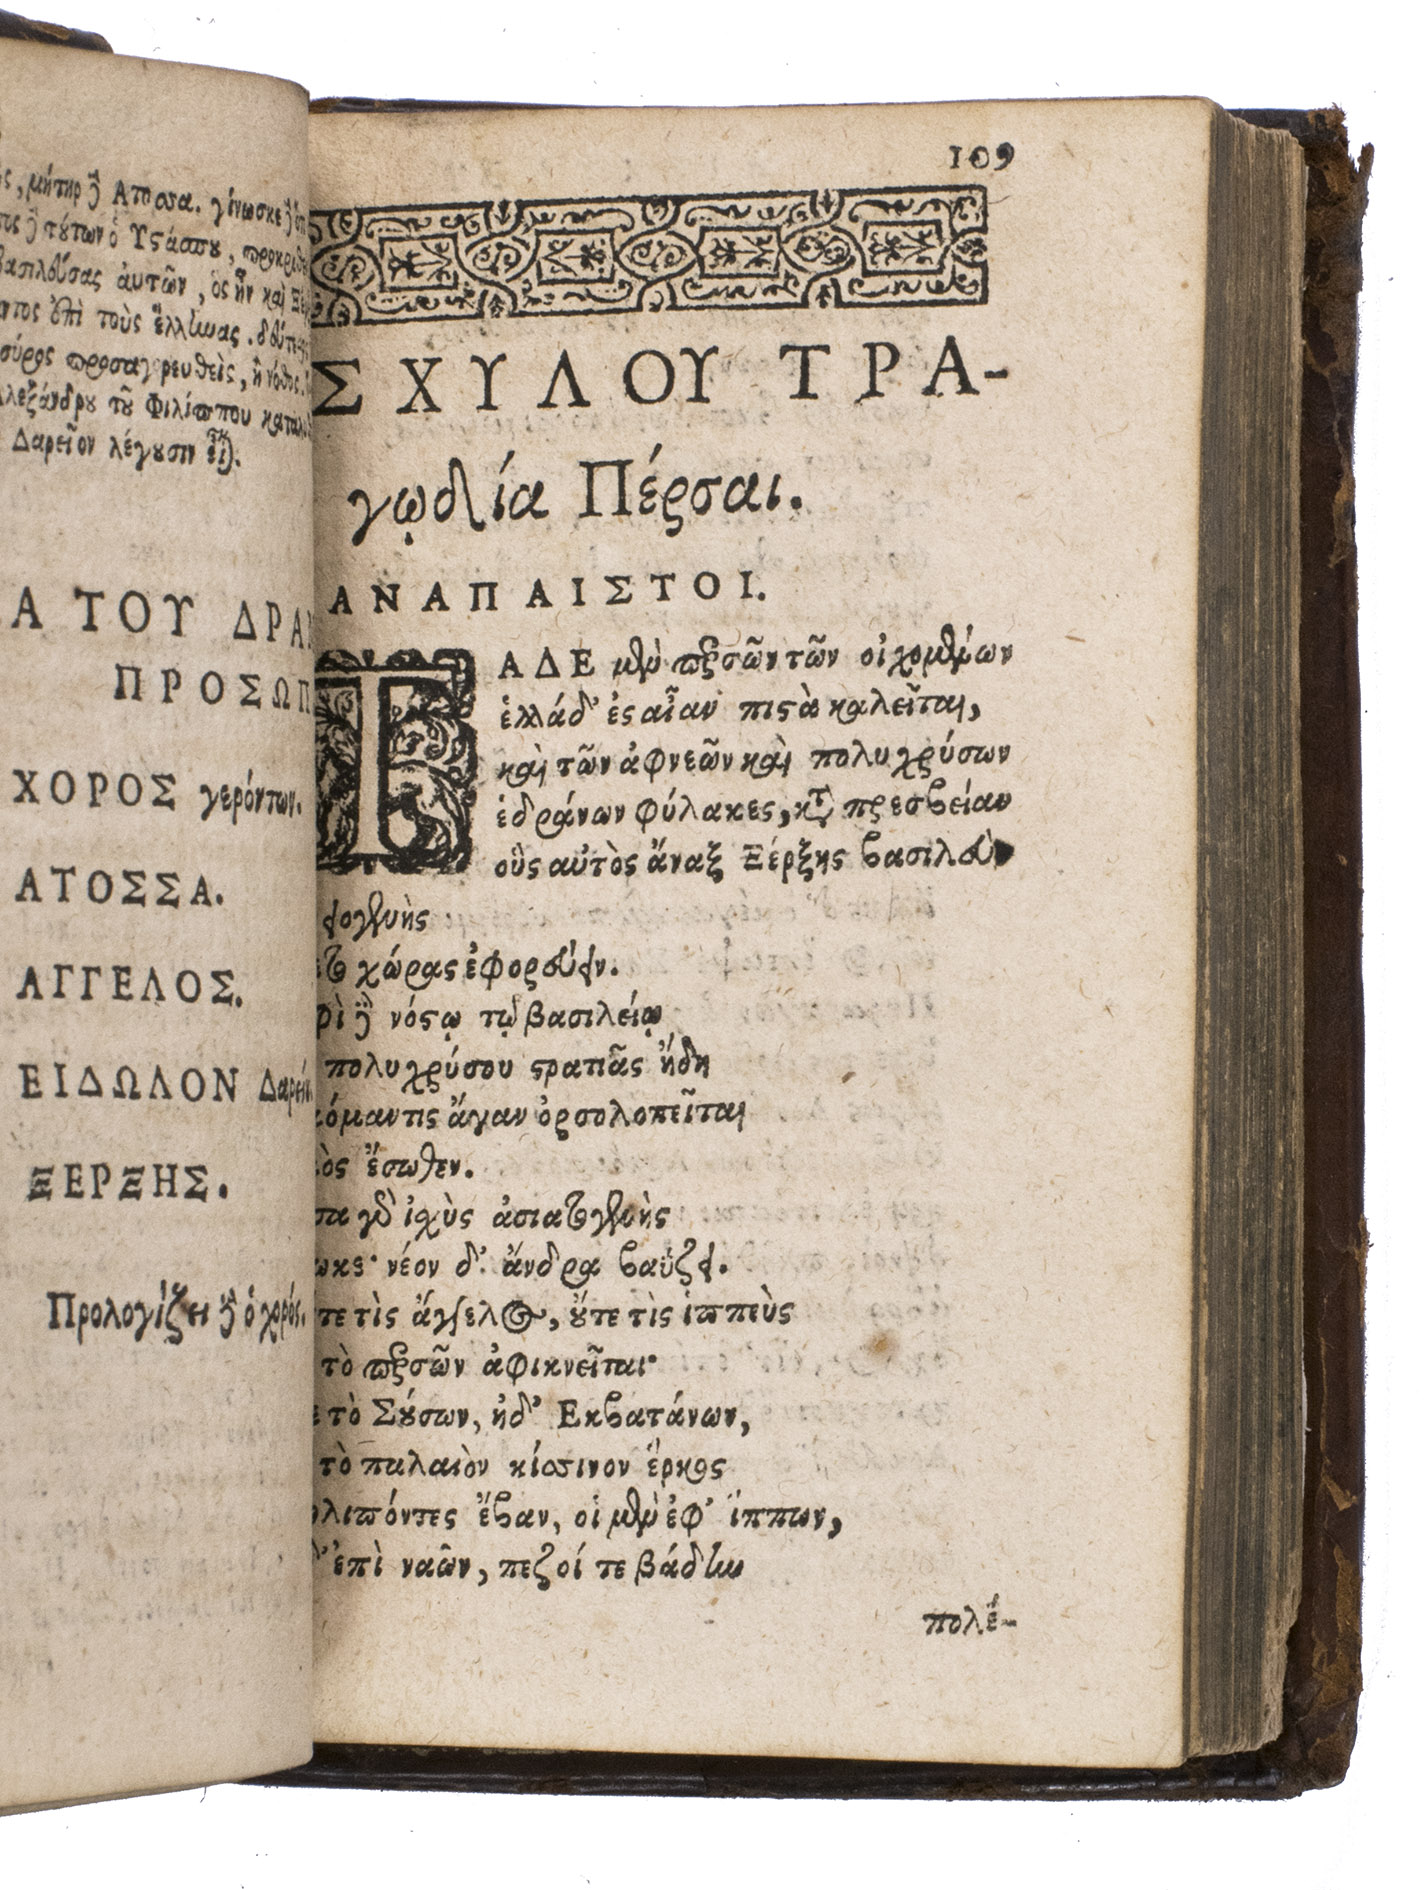 ς, μήτηρ δὲ Ατοσσα. γίνωσκε δὲ ὅτι
τούτων ὁ Υστάσπου,
βασιλεύσας ἀυτῶν, ὃς ἦν καὶ
ἐπὶ τοὺς ἕλληνας.
προσαγορευθεὶς, ἢ νόθος.
λεξάνδρου τοῦ Φιλίππου
Δαρεῖον λέγουσιν
Α ΤΟΥ ΔΡΑ
ΠΡΟΣΩΠ
ΧΟΡΟΣ γερόντων.
ΑΤΟΣΣΑ.
ΑΓΓΕΛΟΣ.
ΕΙΔΩΛΟΝ Δαρεί
ΞΕΡΞΗΣ.
Προλογίζει δὲ ὁ χορός.
109
ΣΧΥΛΟΥ ΤΡΑ-
γῳδία Πέρσαι.
ΑΝΑΠΑΙΣΤΟΙ.
ΤΑΔΕ μὲν περσῶν τῶν οἰχομένων
ἑλλάδ' ἐς αἶαν πιστὰ καλεῖται,
καὶ τῶν ἀφνεῶν καὶ πολυχρύσων
ἑδράνων φύλακες, κατὰ πρεσβείαν
οὓς αὐτὸς ἄναξ Ξέρξης βασιλεὺς
ειογενὴς
το χώρας ἐφορεύειν.
φὶ δὲ νόστῳ τῷ βασιλείῳ
πολυχρύσου στρατιᾶς ἤδη
κόμαντις ἄγαν ὀρσολοπεῖται
ὸς ἔσωθεν.
σα γὰρ ἰχὺς ἀσιατογενὴς
ωκε· νέον δ' ἄνδρα βαΰζει.
τε τὶς ἄγγελος, οὔτε τὶς ἱππεὺς
τὸ περσῶν ἀφικνεῖται·
ε τὸ Σούσων, ἠδ' Εκβατάνων,
τὸ παλαιὸν κίσσινον ἕρκος
λιπόντες ἔβαν, οἱ μὲν ἐφ' ἵππων,
δ' ἐπὶ ναῶν, πεζοί τε βάδην
πολέ-